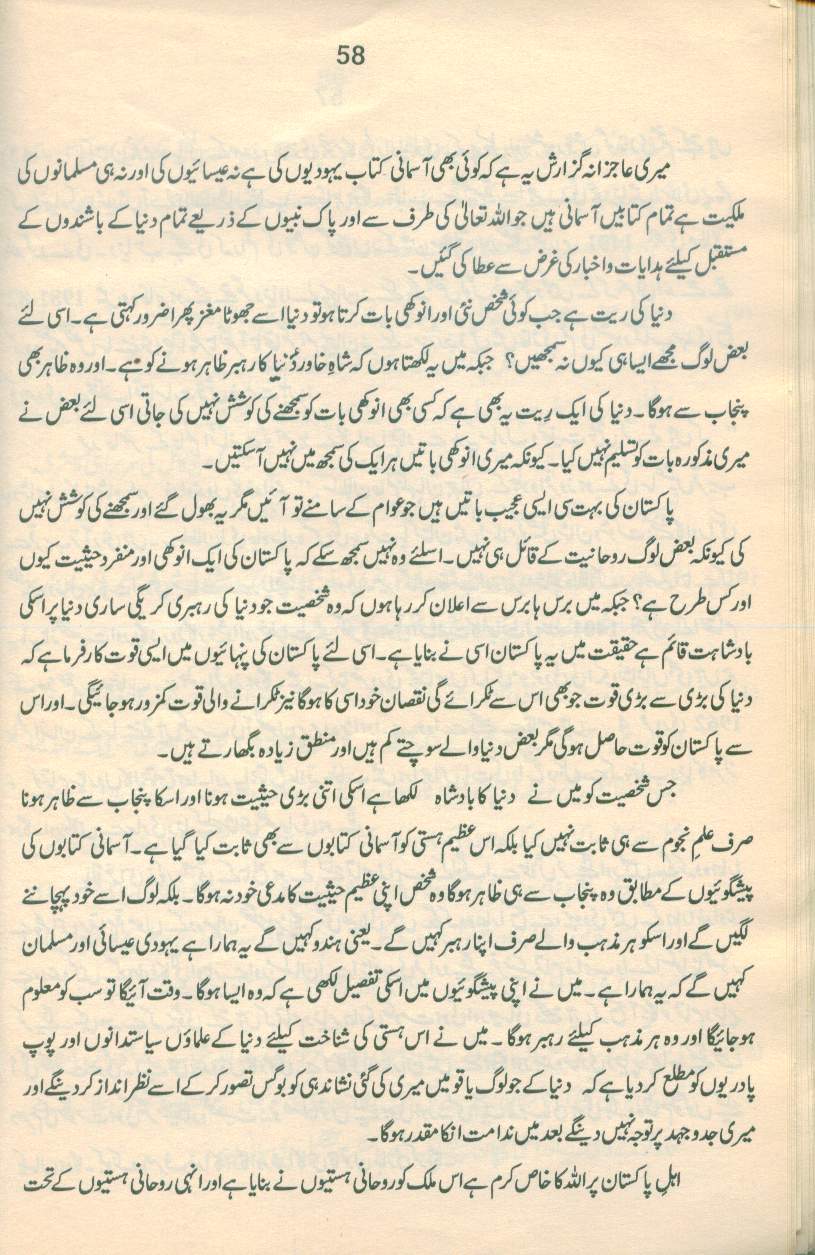 58
میری عاجزانہ گزارش یہ ہے کہ کوئی بھی آسمانی کتاب یہودیوں کی ہے نہ عیسائیوں کی اور نہ ہی مسلمانوں کی
ملکیت ہے تمام کتابیں آسمانی ہیں جو اللہ تعالیٰ کی طرف سے اور پاک نبیوں کے ذریعے تمام دنیا کے باشندوں کے
مستقبل کیلئے ہدایات و اخبار کی غرض سے عطا کی گئیں۔
دنیا کی ریت ہے جب کوئی شخص نئی اور انوکھی بات کرتا ہو تو دنیا اسے جھوٹا مغز پھرا ضرور کہتی ہے۔ اسی لئے
بعض لوگ مجھے ایسا ہی کیوں نہ سمجھیں؟ جبکہ میں یہ لکھتا ہوں کہ شاہِ خاور دُنیا کا رہبر ظاہر ہونے کو ہے۔ اور وہ ظاہر بھی
پنجاب سے ہوگا۔ دنیا کی ایک رِیت یہ بھی ہے کہ کسی بھی انوکھی بات کو سمجھنے کی کوشش نہیں کی جاتی اسی لئے بعض نے
میری مذکورہ بات کو تسلیم نہیں کیا۔ کیونکہ میری انوکھی باتیں ہر ایک کی سمجھ میں نہیں آسکتیں۔
پاکستان کی بہت سی ایسی عجیب باتیں ہیں جو عوام کے سامنے تو آئیں مگر یہ بھول گئے اور سمجھنے کی کوشش نہیں
کی کیونکہ بعض لوگ روحانیت کے قائل ہی نہیں۔ اسلئے وہ نہیں سمجھ سکے کہ پاکستان کی ایک انوکھی اور منفرد حیثیت کیوں
اور کس طرح ہے؟ جبکہ میں برس ہا برس سے اعلان کر رہا ہوں کہ وہ شخصیت جو دنیا کی رہبری کریگی ساری دنیا پر اسکی
بادشاہت قائم ہے حقیقت میں یہ پاکستان اسی نے بنایا ہے۔ اسی لئے پاکستان کی پنہائیوں میں ایسی قوت کارفرما ہے کہ
دنیا کی بڑی سے بڑی قوت جو بھی اس سے ٹکرائے گی نقصان خود اسی کا ہوگا نیز ٹکرانے والی قوت کمزور ہو جائیگی۔ اور اس
سے پاکستان کو قوت حاصل ہوگی مگر بعض دنیا والے سوچتے کم ہیں اور منطق زیادہ بگھارتے ہیں۔
جس شخصیت کو میں نے دنیا کا بادشاہ لکھا ہے اسکی اتنی بڑی حیثیت ہونا اور اسکا پنجاب سے ظاہر ہونا
صرف علمِ نجوم سے ہی ثابت نہیں کیا بلکہ اس عظیم ہستی کو آسمانی کتابوں سے بھی ثابت کیا گیا ہے۔ آسمانی کتابوں کی
پیشگوئیوں کے مطابق وہ پنجاب سے ہی ظاہر ہوگا وہ شخص اپنی عظیم حیثیت کا مدعی خود نہ ہوگا۔ بلکہ لوگ اسے خود پہچاننے
لگیں گے اور اسکو ہر مذہب والے صرف اپنا رہبر کہیں گے۔ یعنی ہندو کہیں گے یہ ہمارا ہے یہودی عیسائی اور مسلمان
کہیں گے کہ یہ ہمارا ہے۔ میں نے اپنی پیشگوئیوں میں اسکی تفصیل لکھی ہے کہ وہ ایسا ہوگا۔ وقت آئیگا تو سب کو معلوم
ہو جائیگا اور وہ ہر مذہب کیلئے رہبر ہوگا۔ میں نے اس ہستی کی شناخت کیلئے دنیا کے علماؤں سیاستدانوں اور پوپ
پادریوں کو مطلع کر دیا ہے کہ دنیا کے جو لوگ یا قومیں میری کی گئی نشاندہی کو بوگس تصور کر کے اسے نظر انداز کر دینگے اور
میری جدوجہد پر توجہ نہیں دینگے بعد میں ندامت انکا مقدر ہوگا۔
اہلِ پاکستان پر اللہ کا خاص کرم ہے اس ملک کو روحانی ہستیوں نے بنایا ہے اور انہی روحانی ہستیوں کے تحت